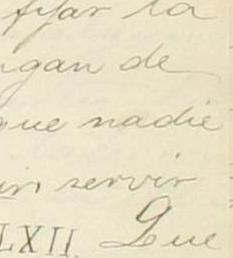 fijar la
ngan de
que nadie
in servir
LXII. Que